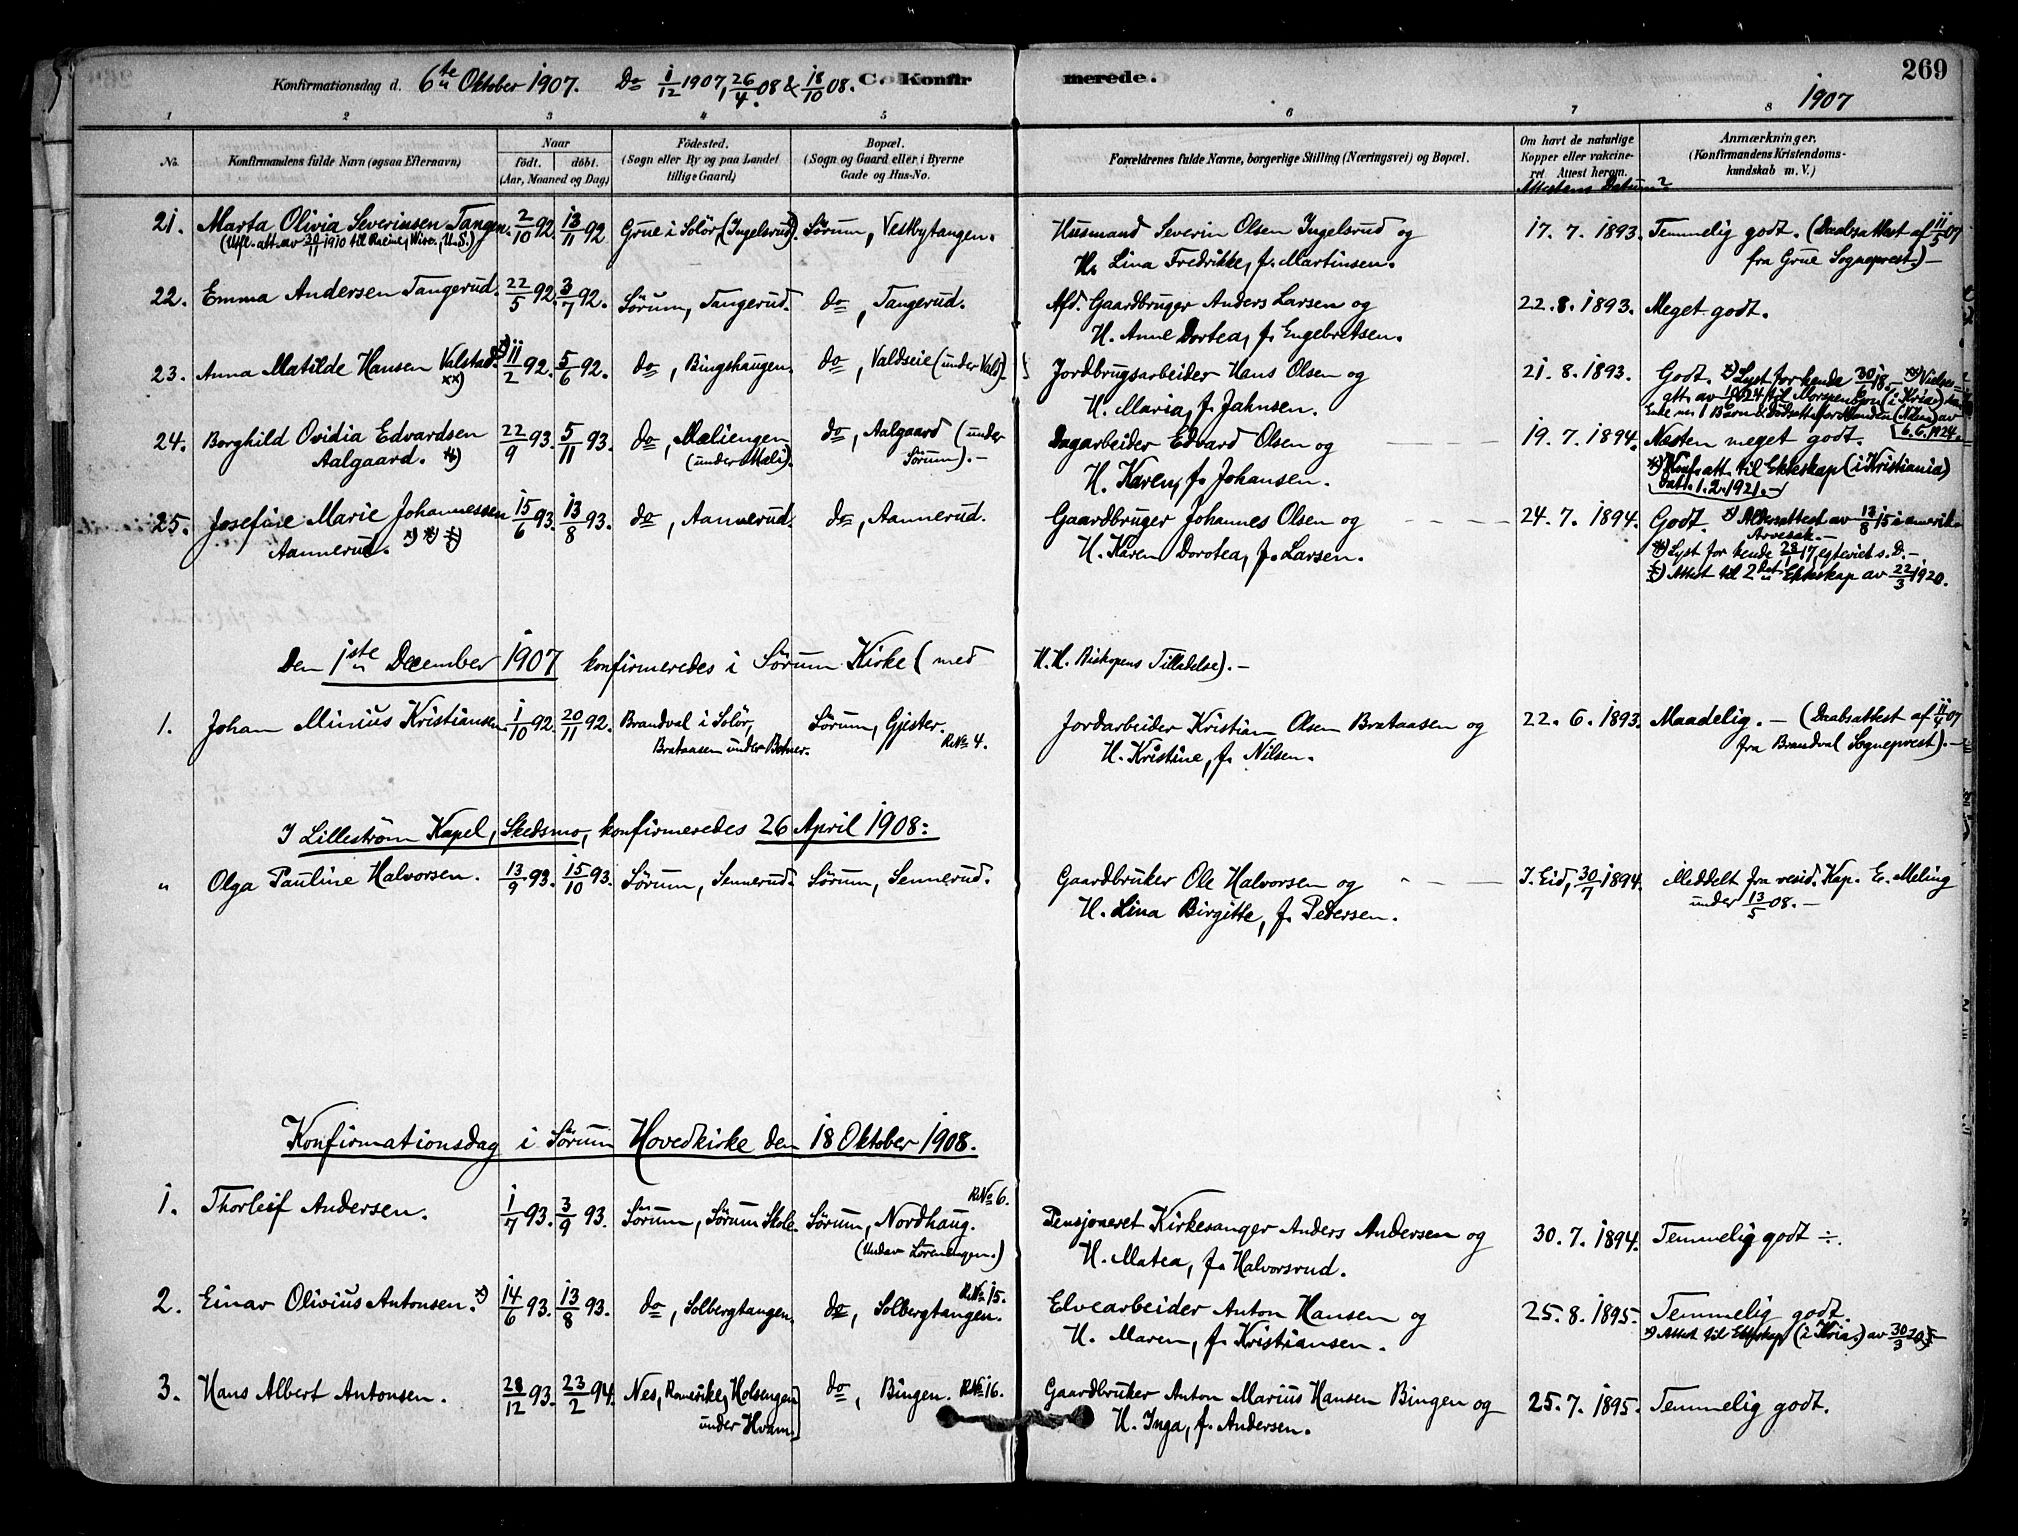 269
Konfirmationsdag d. 6te Oktober 1907. Do 1/12 1907, 26/4 08 & 18/10 08. C. Konfirmerede.
1907
1 2 3 4 5 6 7 8
No. Konfirmandens fulde Navn (ogsaa Efternavn) Naar født. døbt. (Aar, Maaned og Dag) Fødested. (Sogn eller By og paa Landet tillige Gaard) Bopæl. (Sogn og Gaard eller i Byerne Gade og Hus-No. Forældrenes fulde Navne, borgerlige Stilling (Næringsvei) og Bopæl. Om havt de naturlige Kopper eller vakcineret. Attest herom. Anmærkninger. (Konfirmandens Kristendomskundskab m. V.)
Attestens Datum?
21. Marta Olivia Severinsen Tangen. 2/10 92. 13/11 92 Grue i Solør (Ingelsrud). Sørum, Vestbytangen. Husmand Severin Olsen Ingelsrud og 17. 7. 1893. Temmelig godt. (Daabsattest af 11/5 07
(Utfl. att. av 1910 til Racine, Wisc. (U.S.) H. Lina Fredrikke, f. Martinsen. fra Grue Sogneprest.) -
22. Emma Andersen Tangerud. 22/5 92. 3/7 92. Sørum, Tangerud. do, Tangerud. Afd. Gaardbruger Anders Larsen og 22. 8. 1893. Meget godt.
H. Anne Dortea, f. Engebretsen.
23. Anna Matilde Hansen Valstad. x) 11/2 92. 5/6 92. do, Bingshaugen. do, Valdseie (under Vals). Jordbrugsarbeider Hans Olsen og 21. 8. 1893. Godt. x) Lyst for hende 30/6 18. - xx) Vielses-
xx) H. Maria, f. Jahnsen. att. av 1924 til
6.6.1924.
24. Borghild Ovidia Edvardsen 22/9 93. 5/11 93. do, Mæliengen do, Aalgaard (under Dagarbeider Edvard Olsen og 19. 7. 1894. Næsten meget godt.
Aalgaard. x) (under Mæli). Sørum). - H. Karen, f. Johansen. x) Konf. att. til Ekteskap (i Kristiania)
dat. 1. 2. 1921. -
25. Josefine Marie Johannessen 15/6 93. 13/8 93. do, Aannerud. do, Aannerud. Gaardbruger Johannes Olsen og 24. 7. 1894. Godt. x) Aldersattest av 13/8 15 i amerik.
Aannerud. x) x) x) H. Karen Dorotea, f. Larsen. Arvesak. -
x) Lyst for hende 28/1 17, egteviet s. D. -
x) Attest til 2det Ekteskap av 22/3 1920.
Den 1ste December 1907 konfirmeredes i Sørum Kirke (med H. H. Biskopens Tilladelse). -
1. Johan Minius Kristiansen 1/10 92. 20/11 92. Brandval i Solør, Sørum, Gjester. Jordarbeider Kristian Olsen Brataasen og 22. 6. 1893. Maadelig. - (Daabsattest af 11/4 07
Brataasen under Botner. R.No 4. H. Kristine, f. Nilsen. fra Brandval Sogneprest). -
I Lillestrøm Kapel, Skedsmo, konfirmeredes 26 April 1908:
" Olga Pauline Halvorsen. 13/9 93. 15/10 93. Sørum, Sennerud. Sørum, Sennerud. Gaardbruker Ole Halvorsen og I. Eid, 30/7 1894. Meddelt fra resid. Kap. E. Meling
H. Lina Birgitte, f. Pedersen. under 13/5 08. -
Konfirmationsdag i Sørum Hovedkirke den 18 Oktober 1908.
1. Thorleif Andersen. 1/7 93. 3/9 93. Sørum, Sørum Skole. Sørum, Nordhaug. R.No 6. Pensjoneret Kirkesanger Anders Andersen og 30. 7. 1894. Temmelig godt ÷.
(Under Lørenengen.) H. Matea, f. Halvorsrud.
2. Einar Olivius Antonsen. x) 14/6 93. 13/8 93. do, Solbergtangen. do, Solbergtangen. R.No 15. Elvearbeider Anton Hansen og 25. 8. 1895. Temmelig godt.
H. Maren, f. Kristiansen. x) Attest til Ekteskap (i Kria.) av 30/3 20. -
3. Hans Albert Antonsen. 28/12 93. 23/2 94. Nes, Romerike, Holsengen do, Bingen. R.No 16. Gaardbruker Anton Marius Hansen Bingen og 25. 7. 1895. Temmelig godt.
under Hvam. H. Inga, f. Andersen.